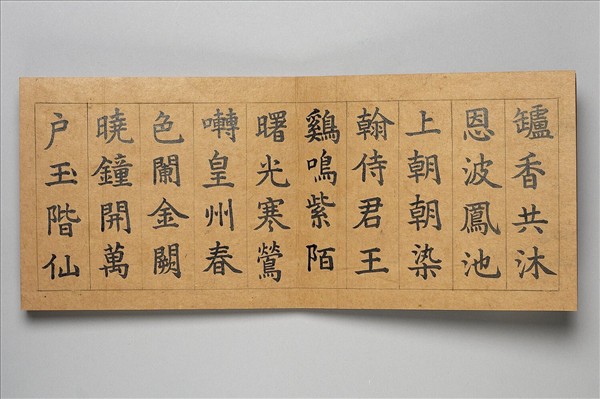 鑪香共沐
恩波鳳池
上朝朝染
翰侍君王
鷄鳴紫陌
曙光寒鶯
囀皇州春
色闌金闕
曉鐘開萬
户玉階仙